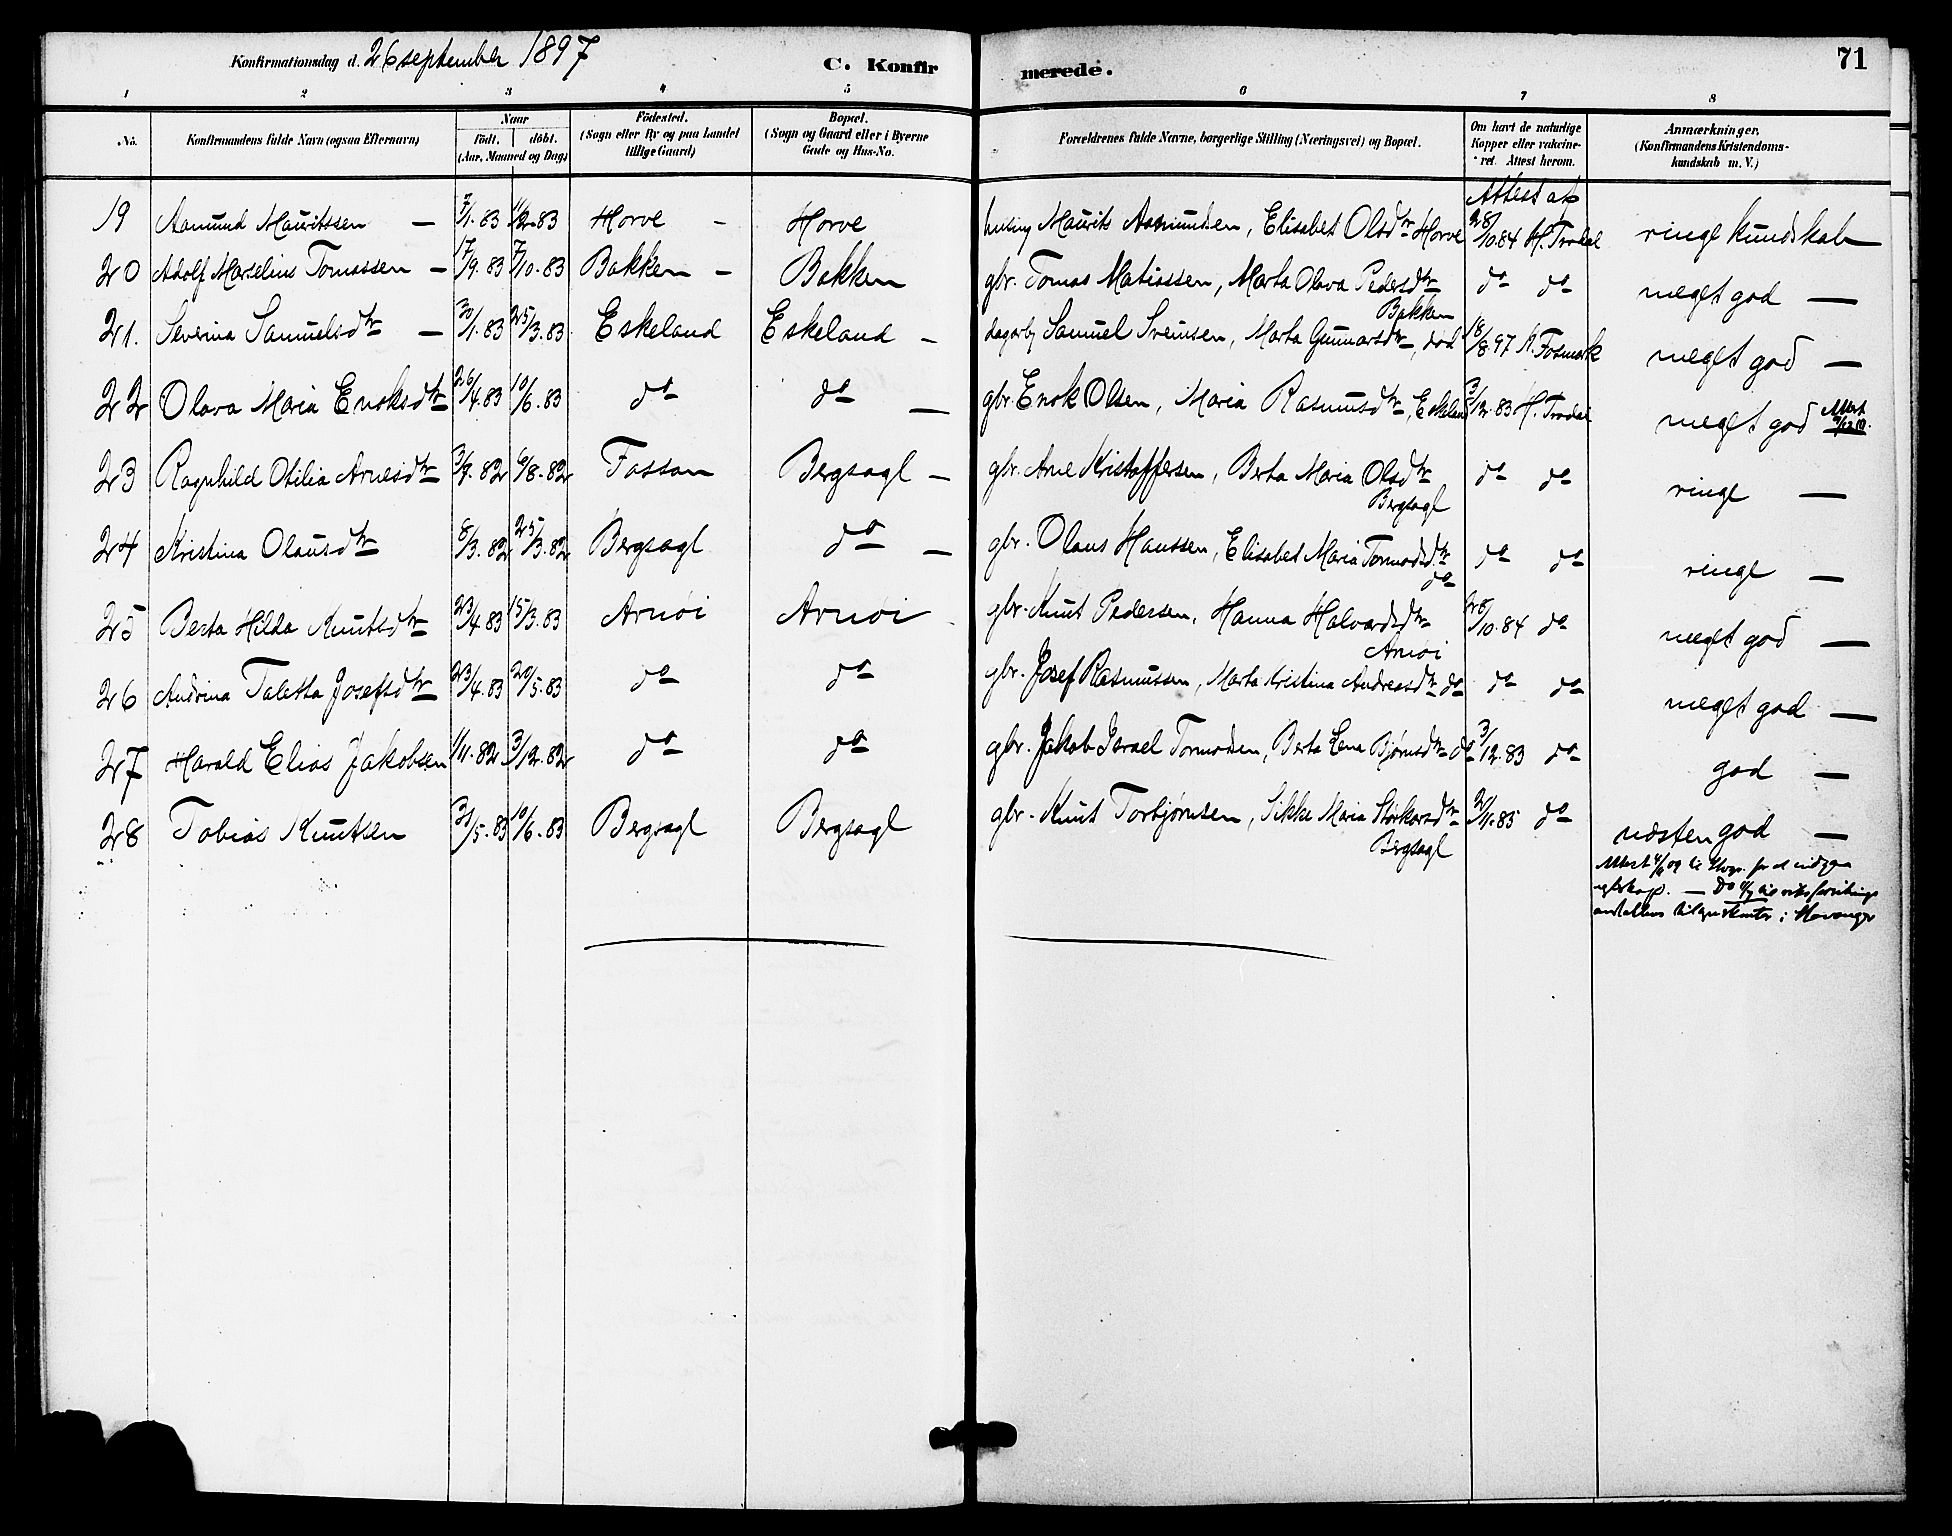 Konfirmationsdag d. 26 september 1897
C. Konfirmerede.
71
1 2 3 4 5 6 7 8
No.
Konfirmandens fulde Navn (ogsaa Efternavn)
Naar
födt. döbt.
(Aar, Maaned og Dag)
Födested.
(Sogn eller By og paa Landet
tillige Gaard)
Bopæl.
(Sogn og Gaard eller i Byerne
Gade og Hus-No.
Forældrenes fulde Navne, borgerlige Stilling (Næringsvei) og Bopæl.
Om havt de naturlige
Kopper eller vakcine-
ret. Attest herom.
Anmærkninger.
(Konfirmandens Kristendoms-
kundskab m. V.)
Attest af
19 Aamund Mauritssen — 7/1.83 11/2.83 Horve - Horve husmg Maurits Aamundsen, Elisabet Olsdtr Horve 28/10.84 H. Trodal ringe kundskab
20 Adolf Marselius Tomassen — 17/9.83 7/10.83 Bakken - Bakken gbr. Tomas Matiassen, Marta Olava Pedersdtr do do meget god —
Bakken
21. Severina Samuelsdtr — 30/1.83 25/3.83 Eskeland Eskeland - Samuel Sveinsen, Marta Gunnarsdtr, död 18/8.97 Fosmark meget god —
22 Olava Maria Enoksdtr 26/4.83 10/6.83 do do — gbr. Enok Olsen, Maria Rasmusdtr, Eskeland 3/12.83 H. Trodal meget god Attest
23 Ragnhild Otilia Arnesdtr 3/7.82 6/8.82 Fossan Bergsagl — gbr. Arne Kristoffersen, Berta Maria Olsdtr do do ringe —
Bergsagl
24 Kristina Olausdtr 8/3.82 25/3.82 Bergsagl do — gbr. Olaus Hanssen, Elisabet Maria Tormodsdtr do do ringe —
do
25 Berta Hilda Knutsdtr 23/4.83 15/3.83 Arnöi Arnöi gbr. Knut Pedersen, Hanna Halvardsdtr 28/10.84 do meget god —
Arnöi
26 Andrina Taletta Josefsdtr 23/4.83 20/5.83 do do gbr. Josef Rasmussen, Marta Kristina Andreasdtr do do do meget god —
27 Harald Elias Jakobsen 1/11.82 3/12.82 do do gbr. Jakob Israel Tormodsen, Berta Lena Bjørnsdtr do 3/12.83 do god —
28 Tobias Knutsen 31/5.83 10/6.83 Bergsagl Bergsagl gbr. Knut Torbjørnsen, Sikke Maria Størkersdtr 2/11.85 do næsten god —
Bergsagl
Attest 4/6 09
i Stavanger